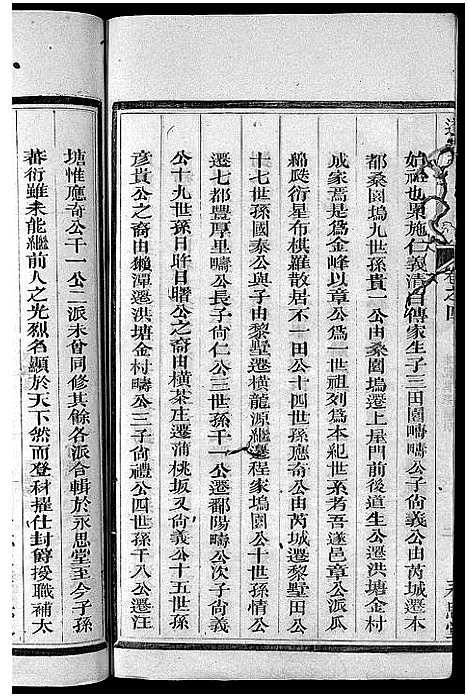 始祖也秉施仁義清白傳家生子三田園疇疇公子尙義公由芮城遷本
都桑園塢九世孫貴一公由桑園塢遷上屋門前後道生公遷洪塘金村
成家焉是爲金峰以章公爲一世祖列爲本紀世系若吾遂邑章公派瓜
綿瓞衍星布棋羅散居不一田公十四世孫應奇公由芮城遷黎墅田公
十七世孫國泰公與子由黎墅遷橫龍源繼遷程家塢園公十世孫情公
遷七都豐厚里疇公長子尙仁公三世孫千一公遷鄱陽疇公次子尙義
公十九世孫日昨日臘公之裔由橫茶庄遷蒲桃坂又尙義公十五世孫
彥貴公之裔由獺潭遷洪塘金村疇公三子尙禮公四世孫千八公遷汪
塘惟應奇公千一公二派未曾同修其餘各派合輯於永思堂至今子孫
蕃衍雖未能繼前人之光烈名顯於天下然而登材擢仕封爵授職補太
卷之四
永思堂